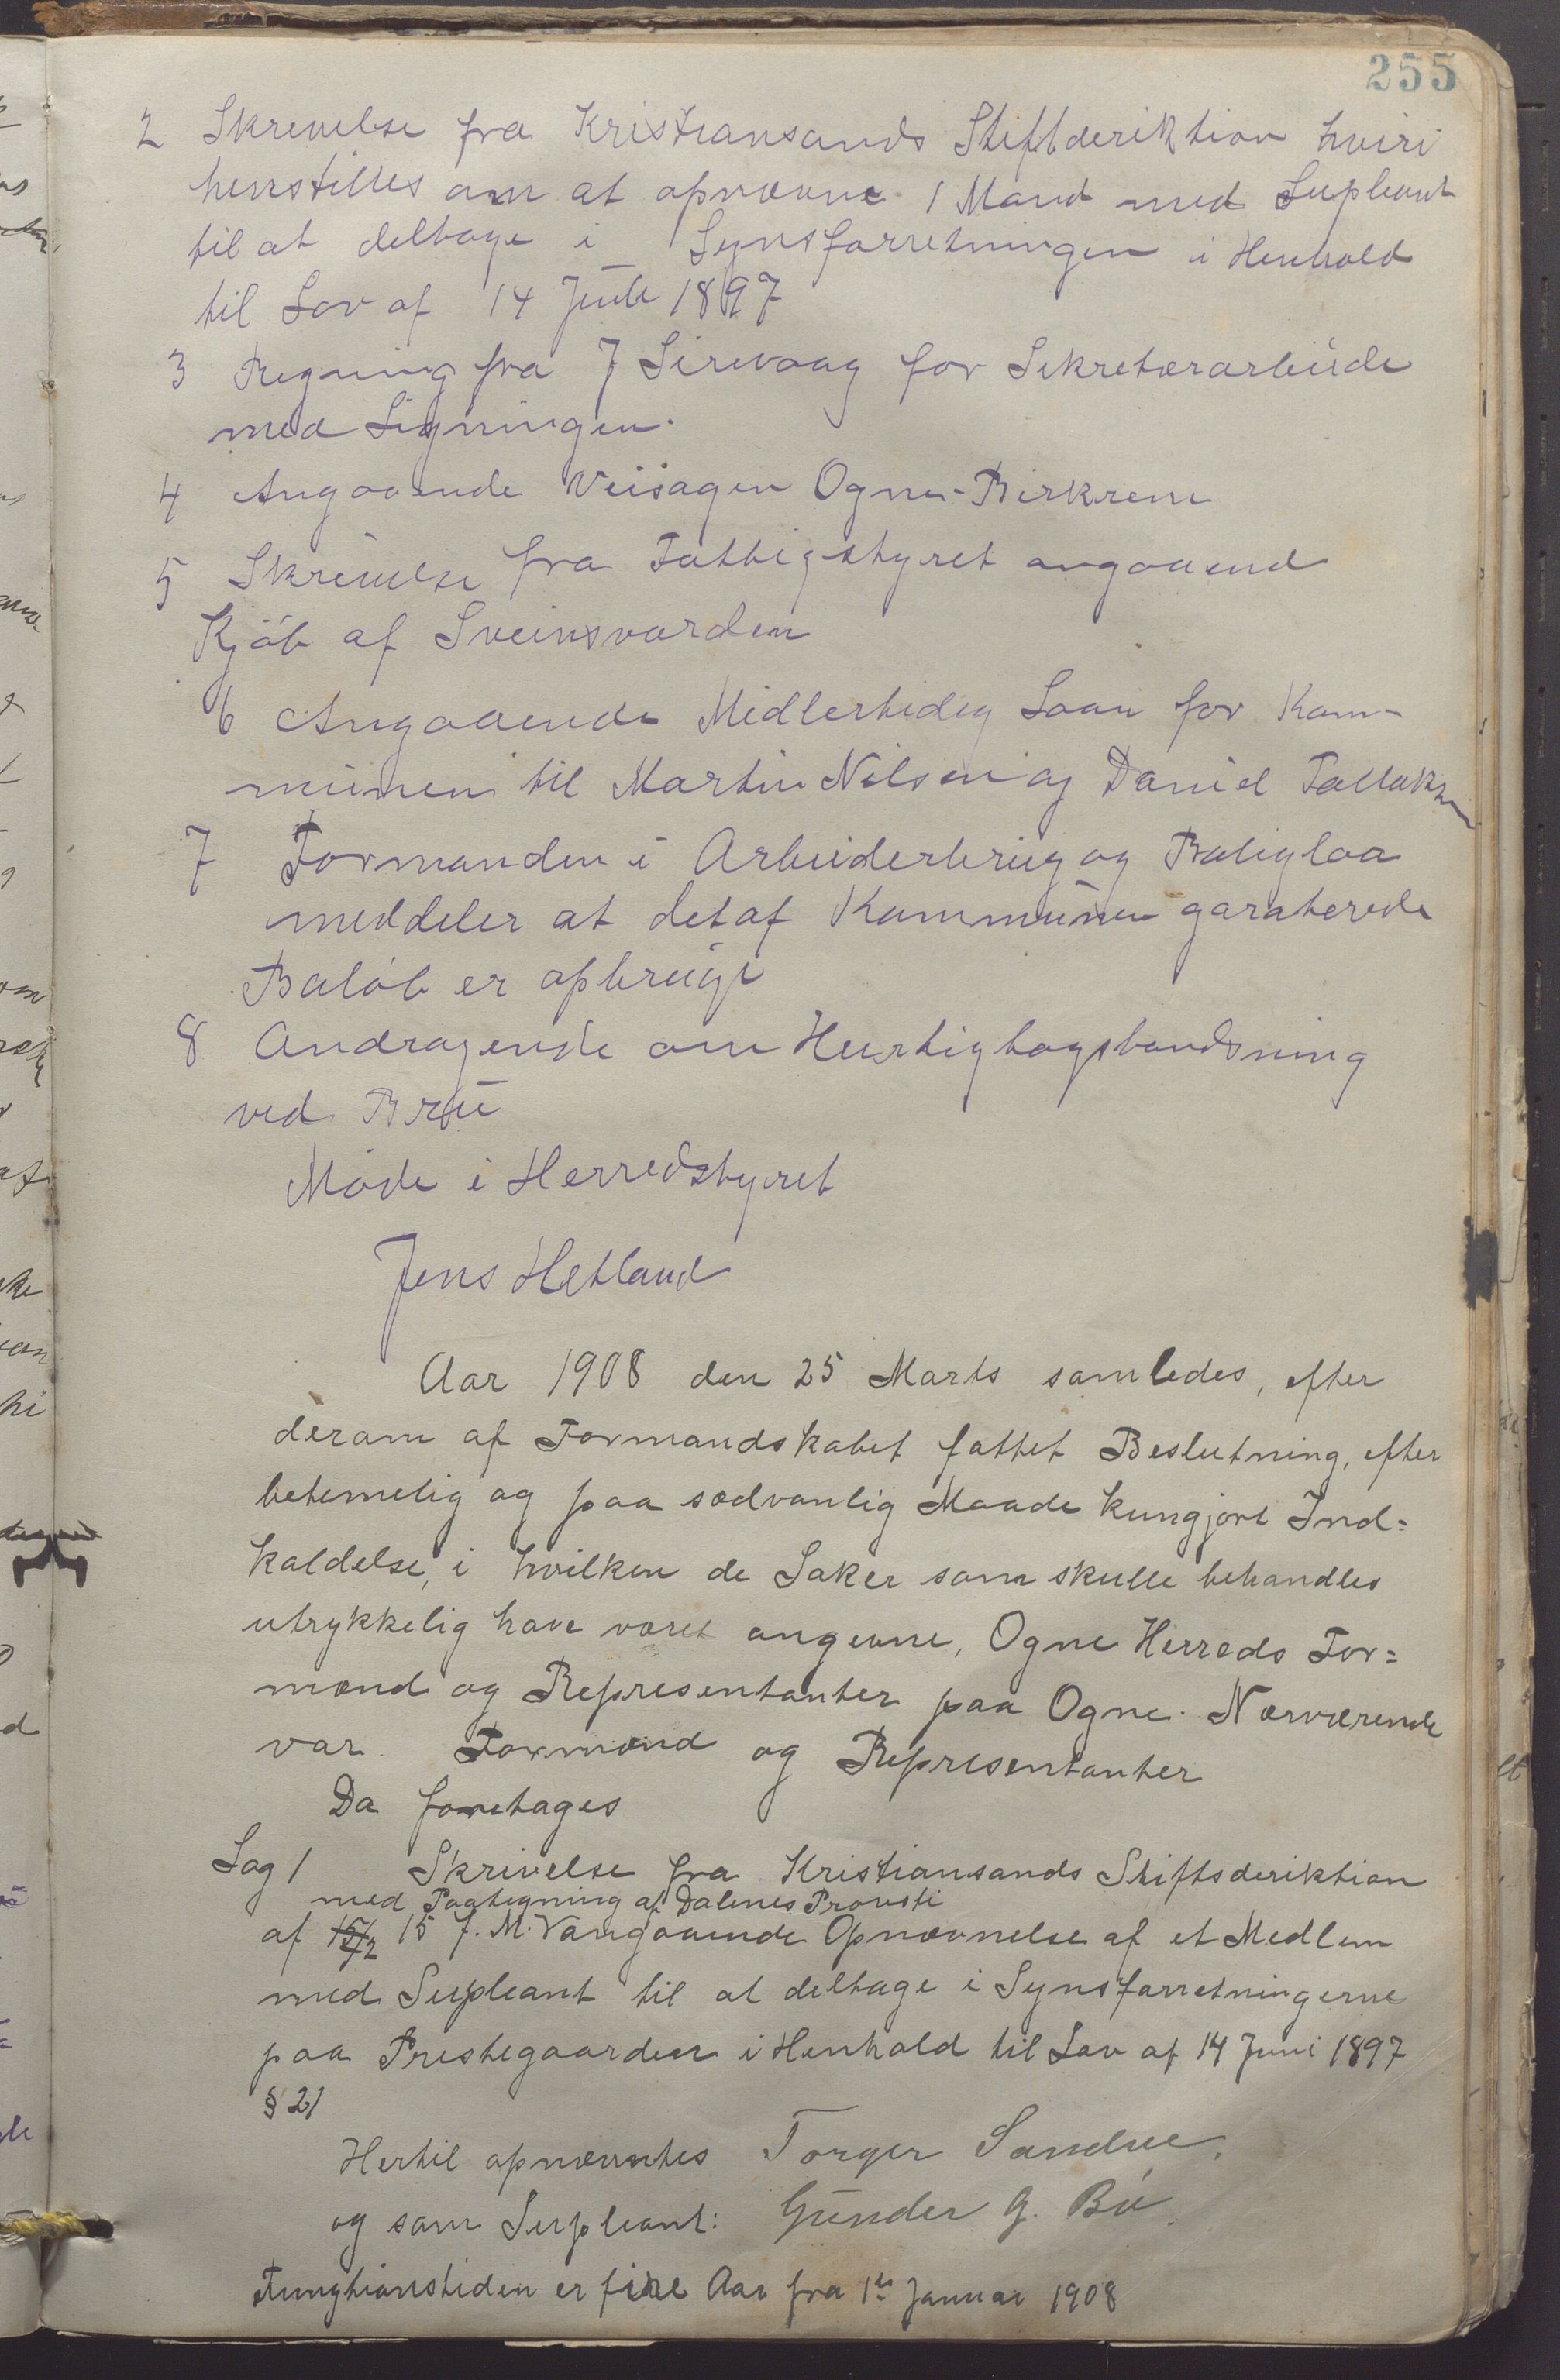 255
2 Skrivelse fra Kristiansands Stiftderiktion hvori
henstilles om at opnævne 1 Mand med Supleant
til at deltage i Synsforretningen i Henhold
til Lov af 14 Juli 1897
3 Regning fra J Sirevaag for Sekretærarbeide
med Ligningen.
4 Angaaende Veisagen Ogne-Birkrem
5 Skrivelse fra Fattigstyret angaaend
Kjøb af Sveinsvarden
6 Angaaende Midlertidig Laan for Kom-
munen til Martin Nilsen og Daniel Tallaksen
7 Formanden i Arbeiderbrug og Boliglaa
meddeler at det af Kommunen garaterede
Beløb er opbrugt
8 Andragende om Hurtigtogstandsning
ved Brue
Møde i Herredstyret
Jens Hetland
Aar 1908 den 25 Marts samledes, efter
derom af Formandskabet fattet Beslutning, efter
betimelig og paa sædvanlig Maade kungjort Ind=
kaldelse, i hvilken de Saker som skulle behandles
utrykkelig have været angevne, Ogne Herreds For=
mænd og Representanter paa Ogne. Nærværende
var Formænd og Representanter
Da foretages
Sag 1 Skrivelse fra Kristiansands Stiftsderiktion
med Paategning af Dalenes Provsti
af 15/2 15 f. M. angaaende Opnævnelse af et Medlem
med Supleant til at deltage i Synsforretningerne
paa Prestegaarden i Henhold til Lov af 14 Juni 1897
§ 21
Hertil opnævntes Torger Sandve,
og som Supleant: Gunder G. Bø.
Fungtionstiden er fire Aar fra 1ste Januar 1908